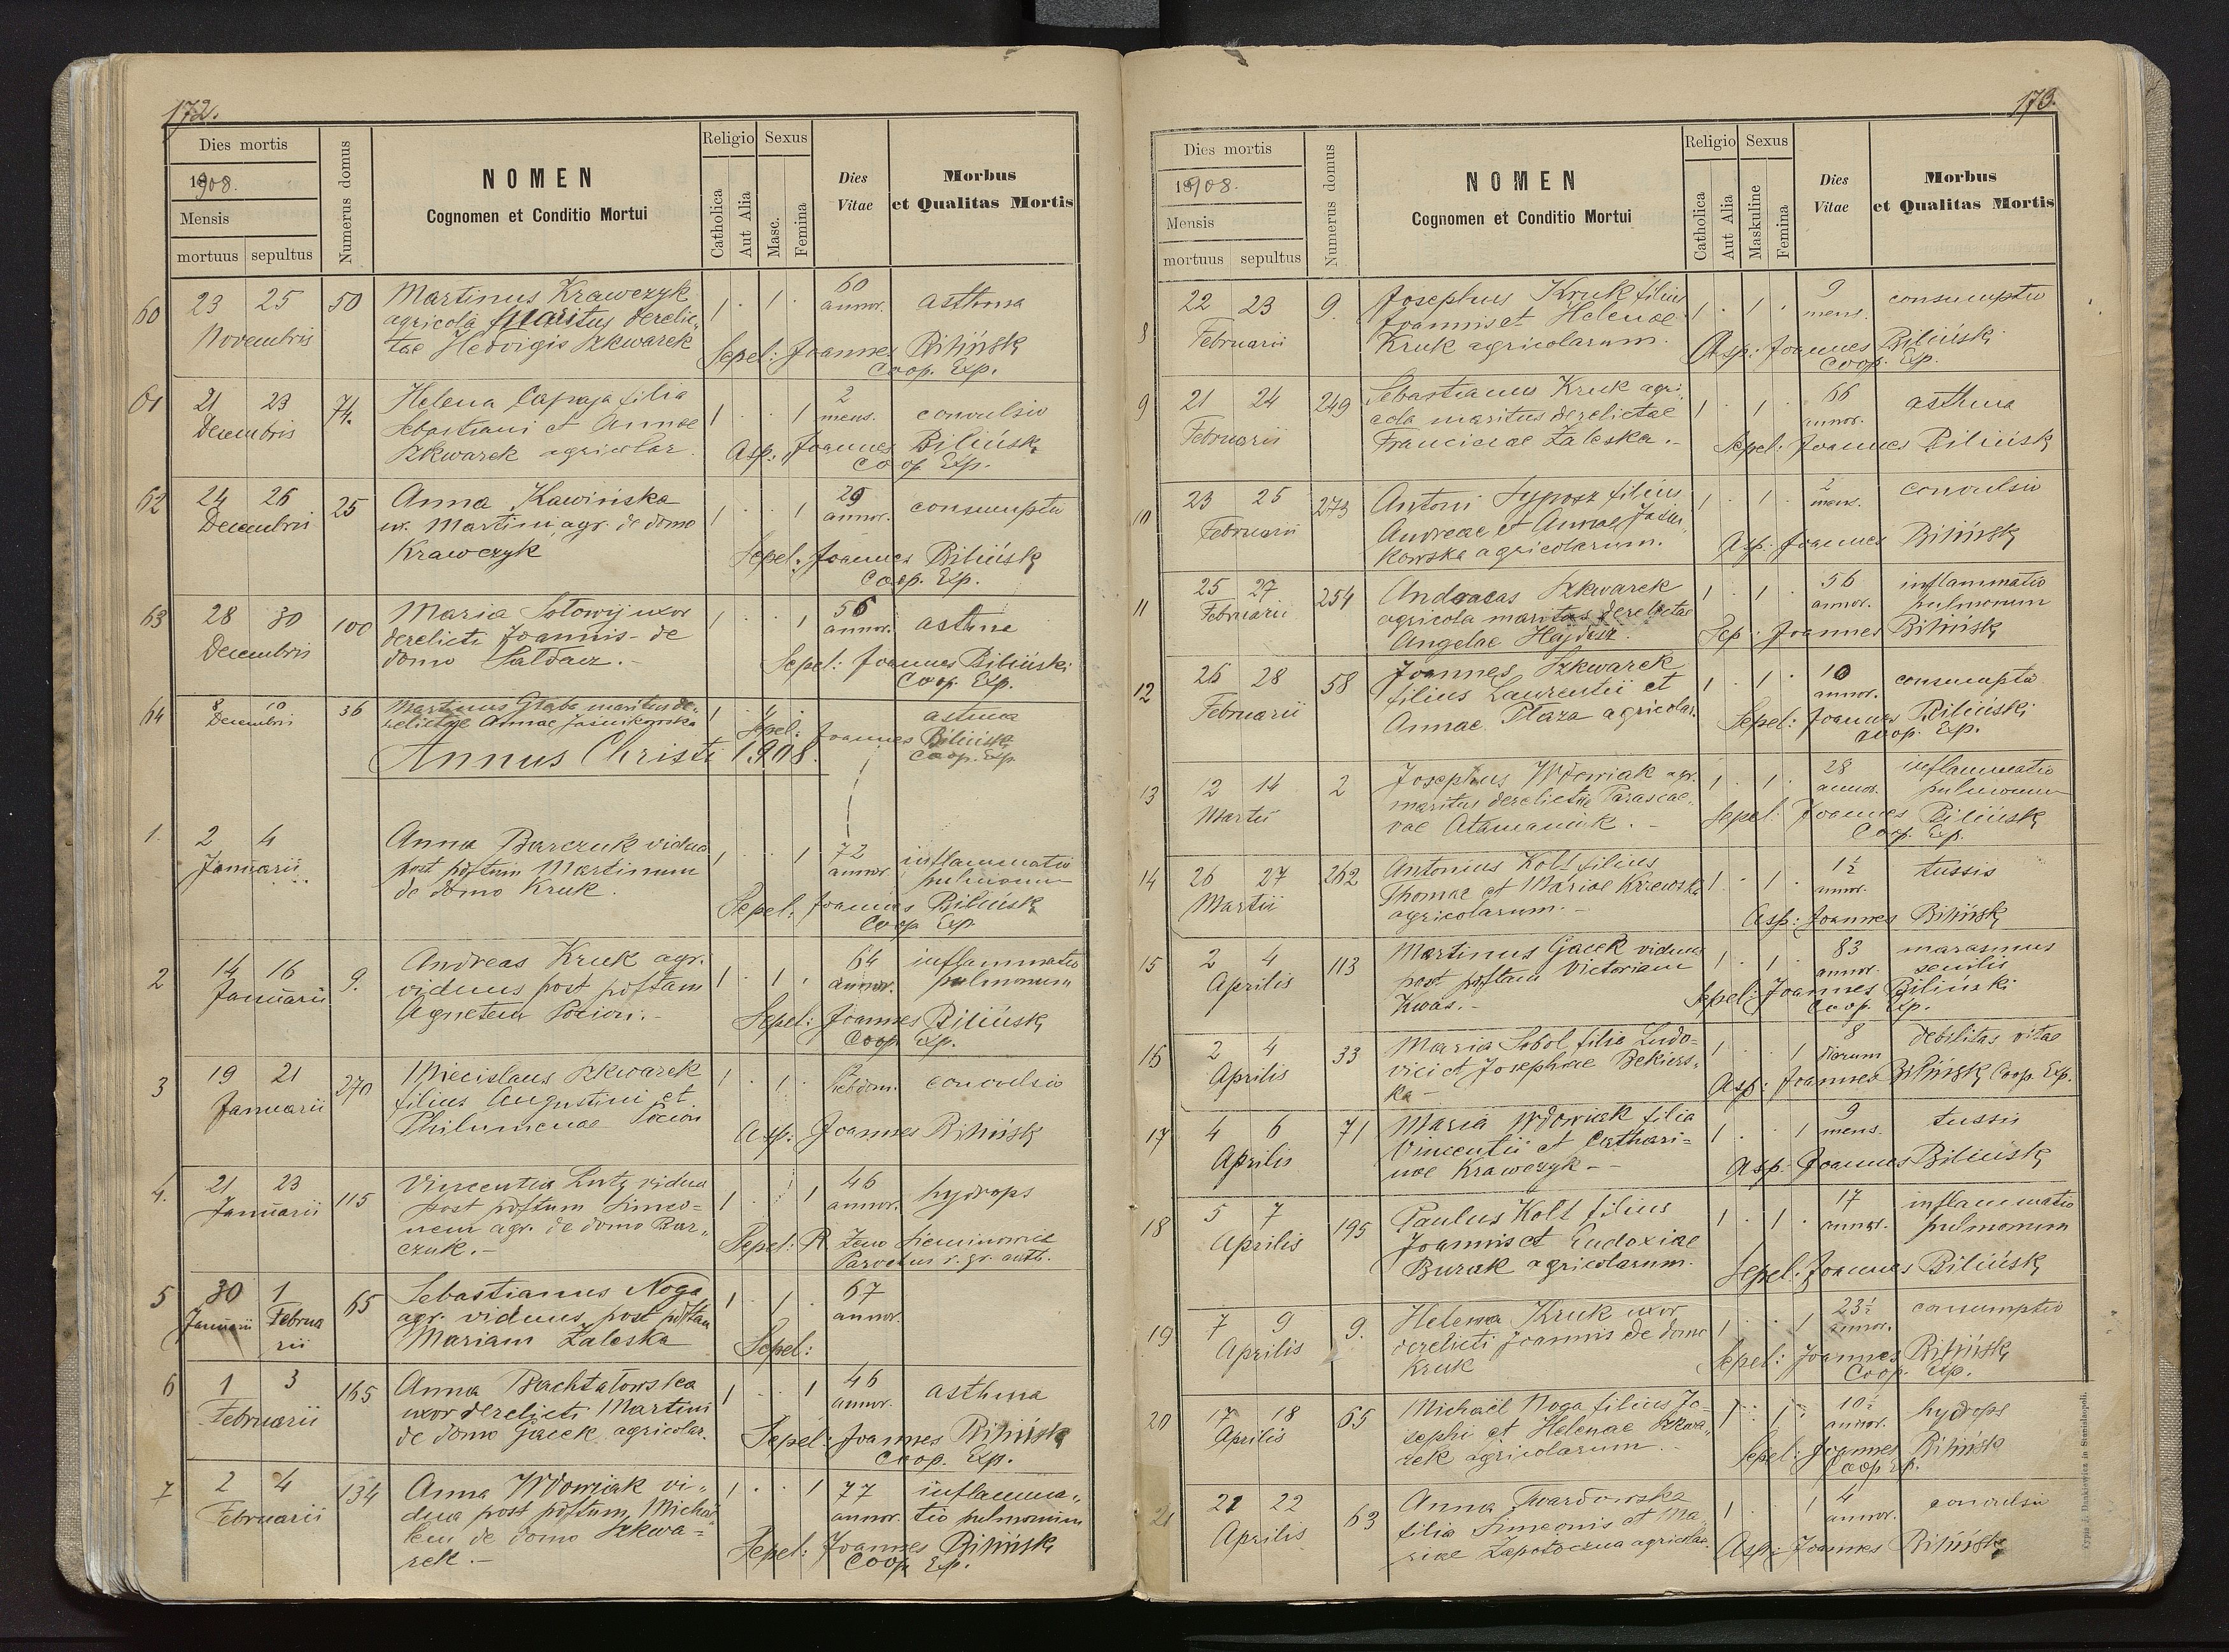 172.
Dies mortis
1908.
Mensis
mortuus sepultus
Numerus domus
NOMEN
Cognomen et Conditio Mortui
Religio
Catholica
Aut Alia
Sexus
Masc.
Femina
Dies
Vitae
Morbus
et Qualitas Mortis
60 23 25 50 Martinus Krawczyk 1 · 1 · 60
Novembris agricola maritus derelic„ annor. asthma
tae Hedvigis Szkwarek Sepel: Joannes Biliński
Coop. Exp.
61 21 23 74. Helena Capaja filia 1 · · 1 2
Decembris Sebastiani et Annae mens. convulsio
Szkwarek agricolar. Asp: Joannes Biliński
Coop. Exp.
62 24 26 25 Anna Kawińska 1 · · 1 29
Decembris ux. Martini agr. de domo annor. consumptio
Krawczyk Sepel: Joannes Biliński
Coop. Exp.
63 28 30 100 Maria Sołowij uxor 1 · · 1 56
Decembris derelicti Joannis - de annor. asthma
domo Hałdacz. - Sepel: Joannes Biliński
Coop. Exp.
64 8 10 36 Martinus Graba maritus de„
Decembris relictae Annae Jasinkowska 1 astma
Sepel: Joannes Biliński
Coop. Exp.
Annus Christi 1908.
1. 2 4 Anna Barczuk vidua 72
Januarii post p̄ōstum Martinum 1 · · 1 annor. inflammatio
de domo Kruk. pulmonum
Sepel: Joannes Biliński
Coop Exp
2 14 16 9. Andreas Kruk agr. 1 · 1 · 64 inflammatio
Januarii viduus post p̄ōstam annor. pulmonum
Agnetem Pocion. - Sepel: Joannes Biliński
Coop Exp.
3 19 21 270 Miecislaus Szkwarek 1 · 1 ·
Januarii filius Augustini et hebdom. convulsio
Philumenae Pocion Asp: Joannes Biliński
4. 21 23 115 Vincentia Luty vidua 46
Januarii post p̄ōstum Simeo= 1 · · 1 annor. hydrops
nem agr. de domo Bar„ Sepel: R Zeno Sieminowicz
czuk. - Parochus r. gr. autt.
5 30 1 65 Sebastianus Noga 1 · 1 · 67
Januarii Februa agr. viduus post p̄ōstam annor.
rii Mariam Załeska Sepel:
6 1 3 165 Anna Bachtałowska 1 · · 1 46
Februarii uxor derelicti Martini annor. asthma
de domo Gacek agricolar. Sepel: Joannes Biliński
Coop. Exp.
7 2 4 134 Anna Wdowiak vi„ 1 · · 1 77 inflamma„
Februarii dua post p̄ōstum Michae annor. tio pulmonum
lem de domo Szkwa= Sepel: Joannes Biliński
rek. - Coop Exp.
173.
Dies mortis
1908.
Mensis
mortuus sepultus
Numerus domus
NOMEN
Cognomen et Conditio Mortui
Religio
Catholica
Aut Alia
Sexus
Maskuline
Femina
Dies
Vitae
Morbus
et Qualitas Mortis
8 22 23 9. Josephus Kruk filius 9 consumptio
Februarii Joannis et Helenae 1 · 1 · mens.
Kruk agricolarum. Asp: Joannes Biliński
Coop. Exp.
9 21 24 249 Sebastianus Kruk agri„ 66
Februarii cola maritus derelictae 1 · 1 · annor. asthma
Franciscae Załeska. - Sepel: Joannes Biliński
10 23 25 273 Antoni Syposz filius 1 · 1 · 2 convulsio
Februarii Andreae et Annae Jasin„ mens.
kowska agricolarum. Asp: Joannes Biliński
11 25 27 254 Andreas Szkwarek 1 · 1 · 56 inflammatio
Februarii agricola maritus derelictae annor. pulmonum
Angelae Hajdasz. Sep: Joannes Biliński
12 26 28 58 Joannes Szkwarek 10
Februarii filius Laurentii et 1 · 1 · annor. consumptio
Annae Płaza agricolar. Sepel: Joannes Biliński
Coop. Exp.
13 12 14 2 Josephus Wdowiak agr. 1 · 1 · 28 inflammatio
Martii maritus derelictae Parasce„ annor. pulmonum
vae Atamaniuk. - Sepel: Joannes Biliński
Coop. Exp.
14 26 27 262 Antonius Kołt filius 1½ tussis
Martii Thomae et Mariae Krzewska 1 · 1 · annor.
agricolarum. - Asp: Joannes Biliński
15 2 4 113 Martinus Gacek viduus 83 marasmus
Aprilis post p̄ōstam Victoriam 1 · 1 · annor. senilis
Kwaś. - Sepel: Joannes Biliński
Coop. Exp.
16 2 4 33 Maria Sobol filia Ludo= 8 debilitas vitae
Aprilis vici et Josephae Bekiers„ 1 · · 1 dierum
ka - Asp: Joannes Biliński Coop. Exp.
17 4 6 71 Maria Wdowiak filia 9 tussis
Aprilis Vincentii et Cathari= 1 · · 1 mens.
nae Krawczyk - - Asp: Joannes Biliński
18 5 7 195 Paulus Kołt filius 17 inflammatio
Aprilis Joannis et Eudoxiae 1 · 1 · annor. pulmonum
Burak agricolarum. Sepel: Joannes Biliński
19 7 9 9. Helena Kruk uxor 23½ consumptio
Aprilis derelicti Joannis de domo 1 · · 1 annor.
Kruk Sepel: Joannes Biliński
Coop. Exp.
20 17 18 65 Michaël Noga filius Jo= 10½ hydrops
Aprilis sephi et Helenae Szkwa„ annor.
rek agricolarum Sepel: Joannes Biliński
Coop Exp.
21 21 22 63 Anna Twardowska 4 convulsio
Aprilis filia Simeonis et Ma„ 1 · · 1 annor.
riae Zapotoczna agricolar. Asp: Joannes Biliński
Typis J. Dankiewicz in Stanislaopoli.